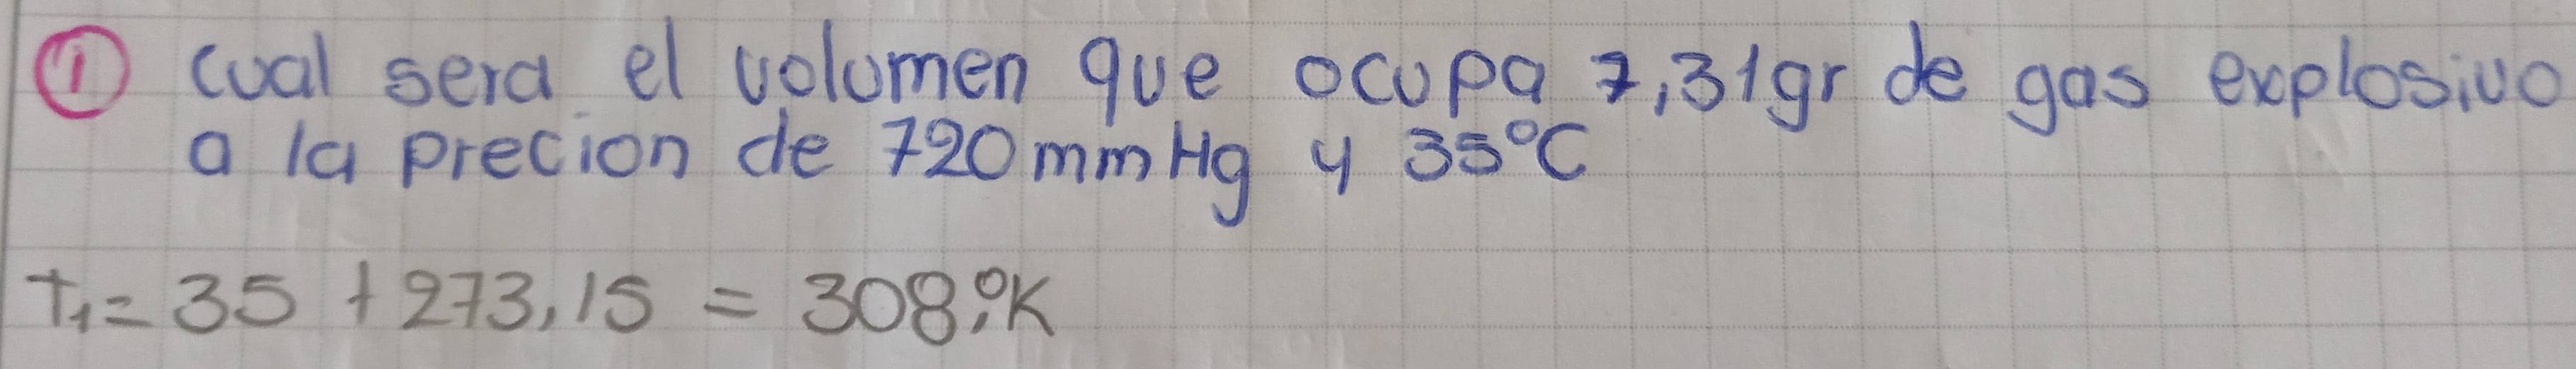 ① cual sera el volumen que ocupa 7,31gr de gas explosivo
a la precion de 720mmHg y 35°C
T₁= 35 + 273,15 = 308,°K